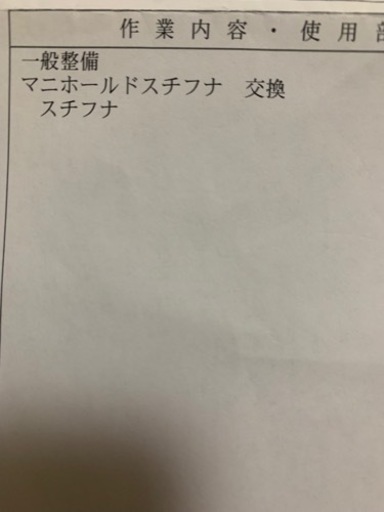 作業内容・使用部
一般整備
マニホールドスチフナ 交換
スチフナ